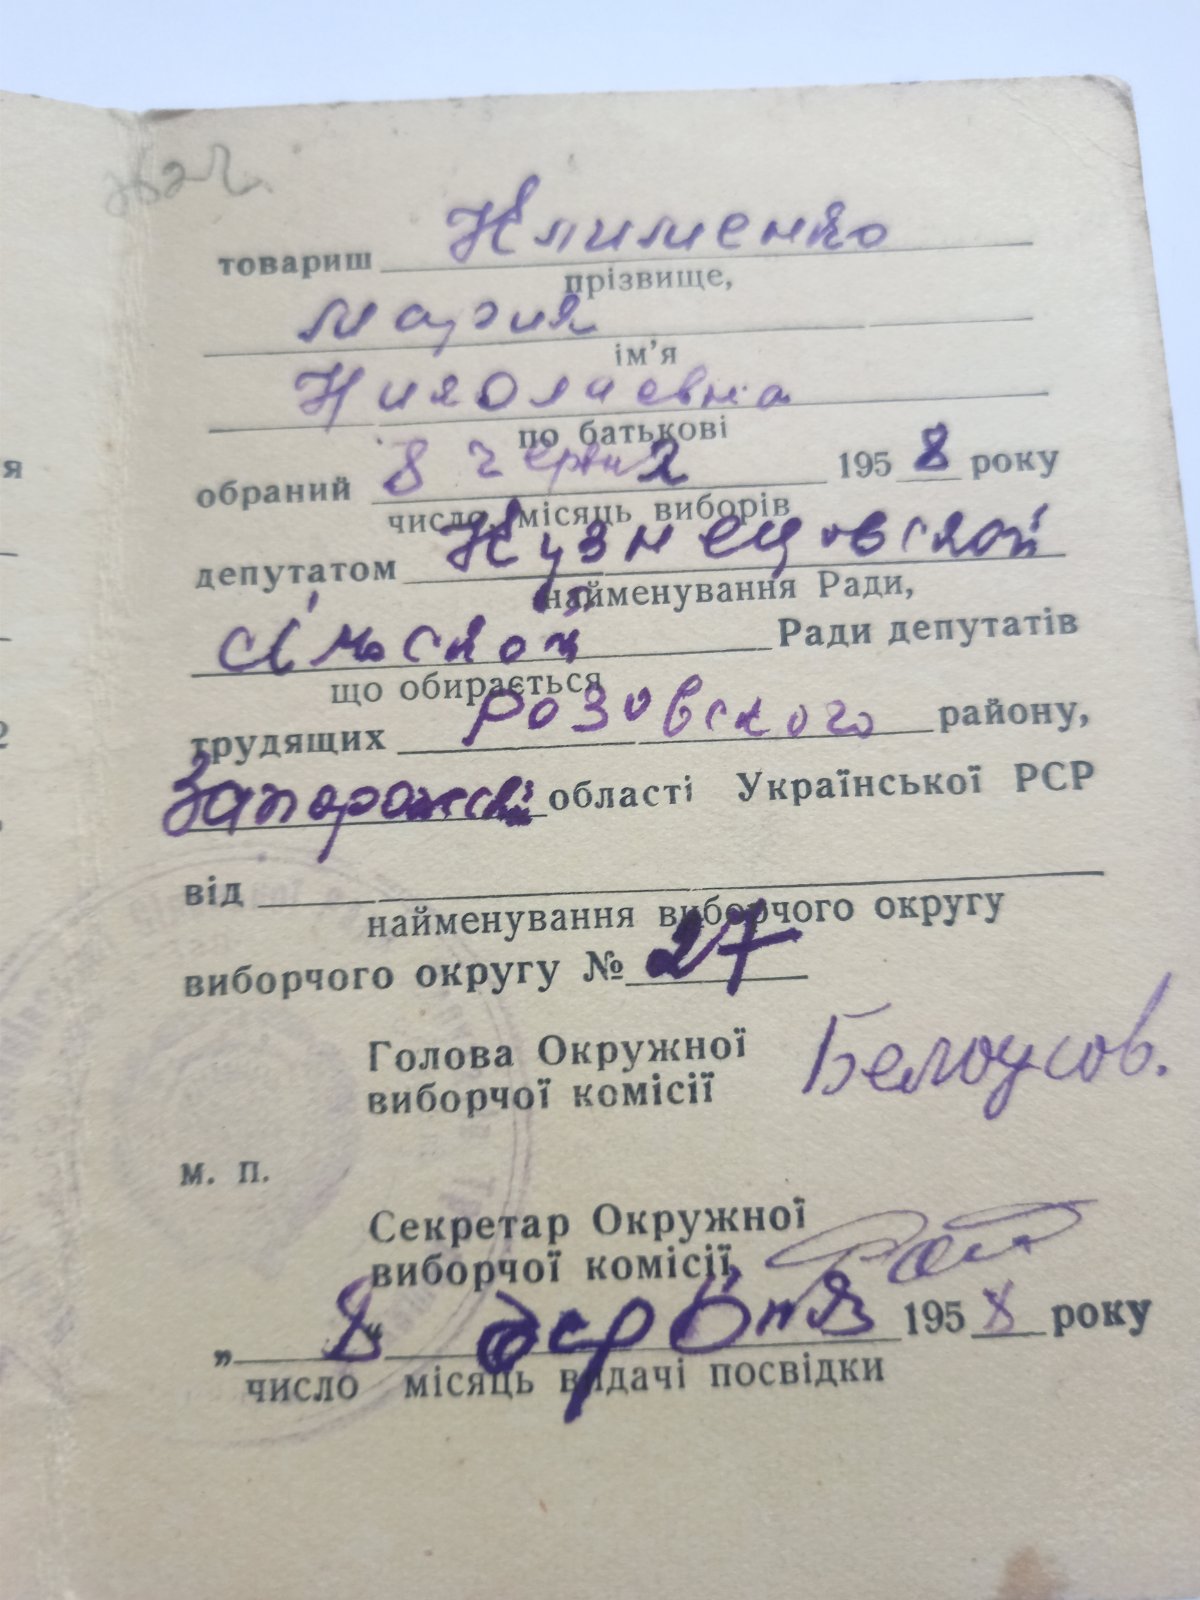 товариш Клименко
прізвище,
Мария
ім'я
Николаевна
по батькові
обраний 8 червня 1958 року
число, місяць виборів
депутатом Кузнецовской
найменування Ради,
сільской Ради депутатів
що обирається
трудящих Розовского району,
Запорожскі області Української РСР
від
найменування виборчого округу
виборчого округу № 27
Голова Окружної Белоусов.
виборчої комісії
м. п.
Секретар Окружної
виборчої комісії
„ 8 “ 1958 року
число місяць видачі посвідки
я
2